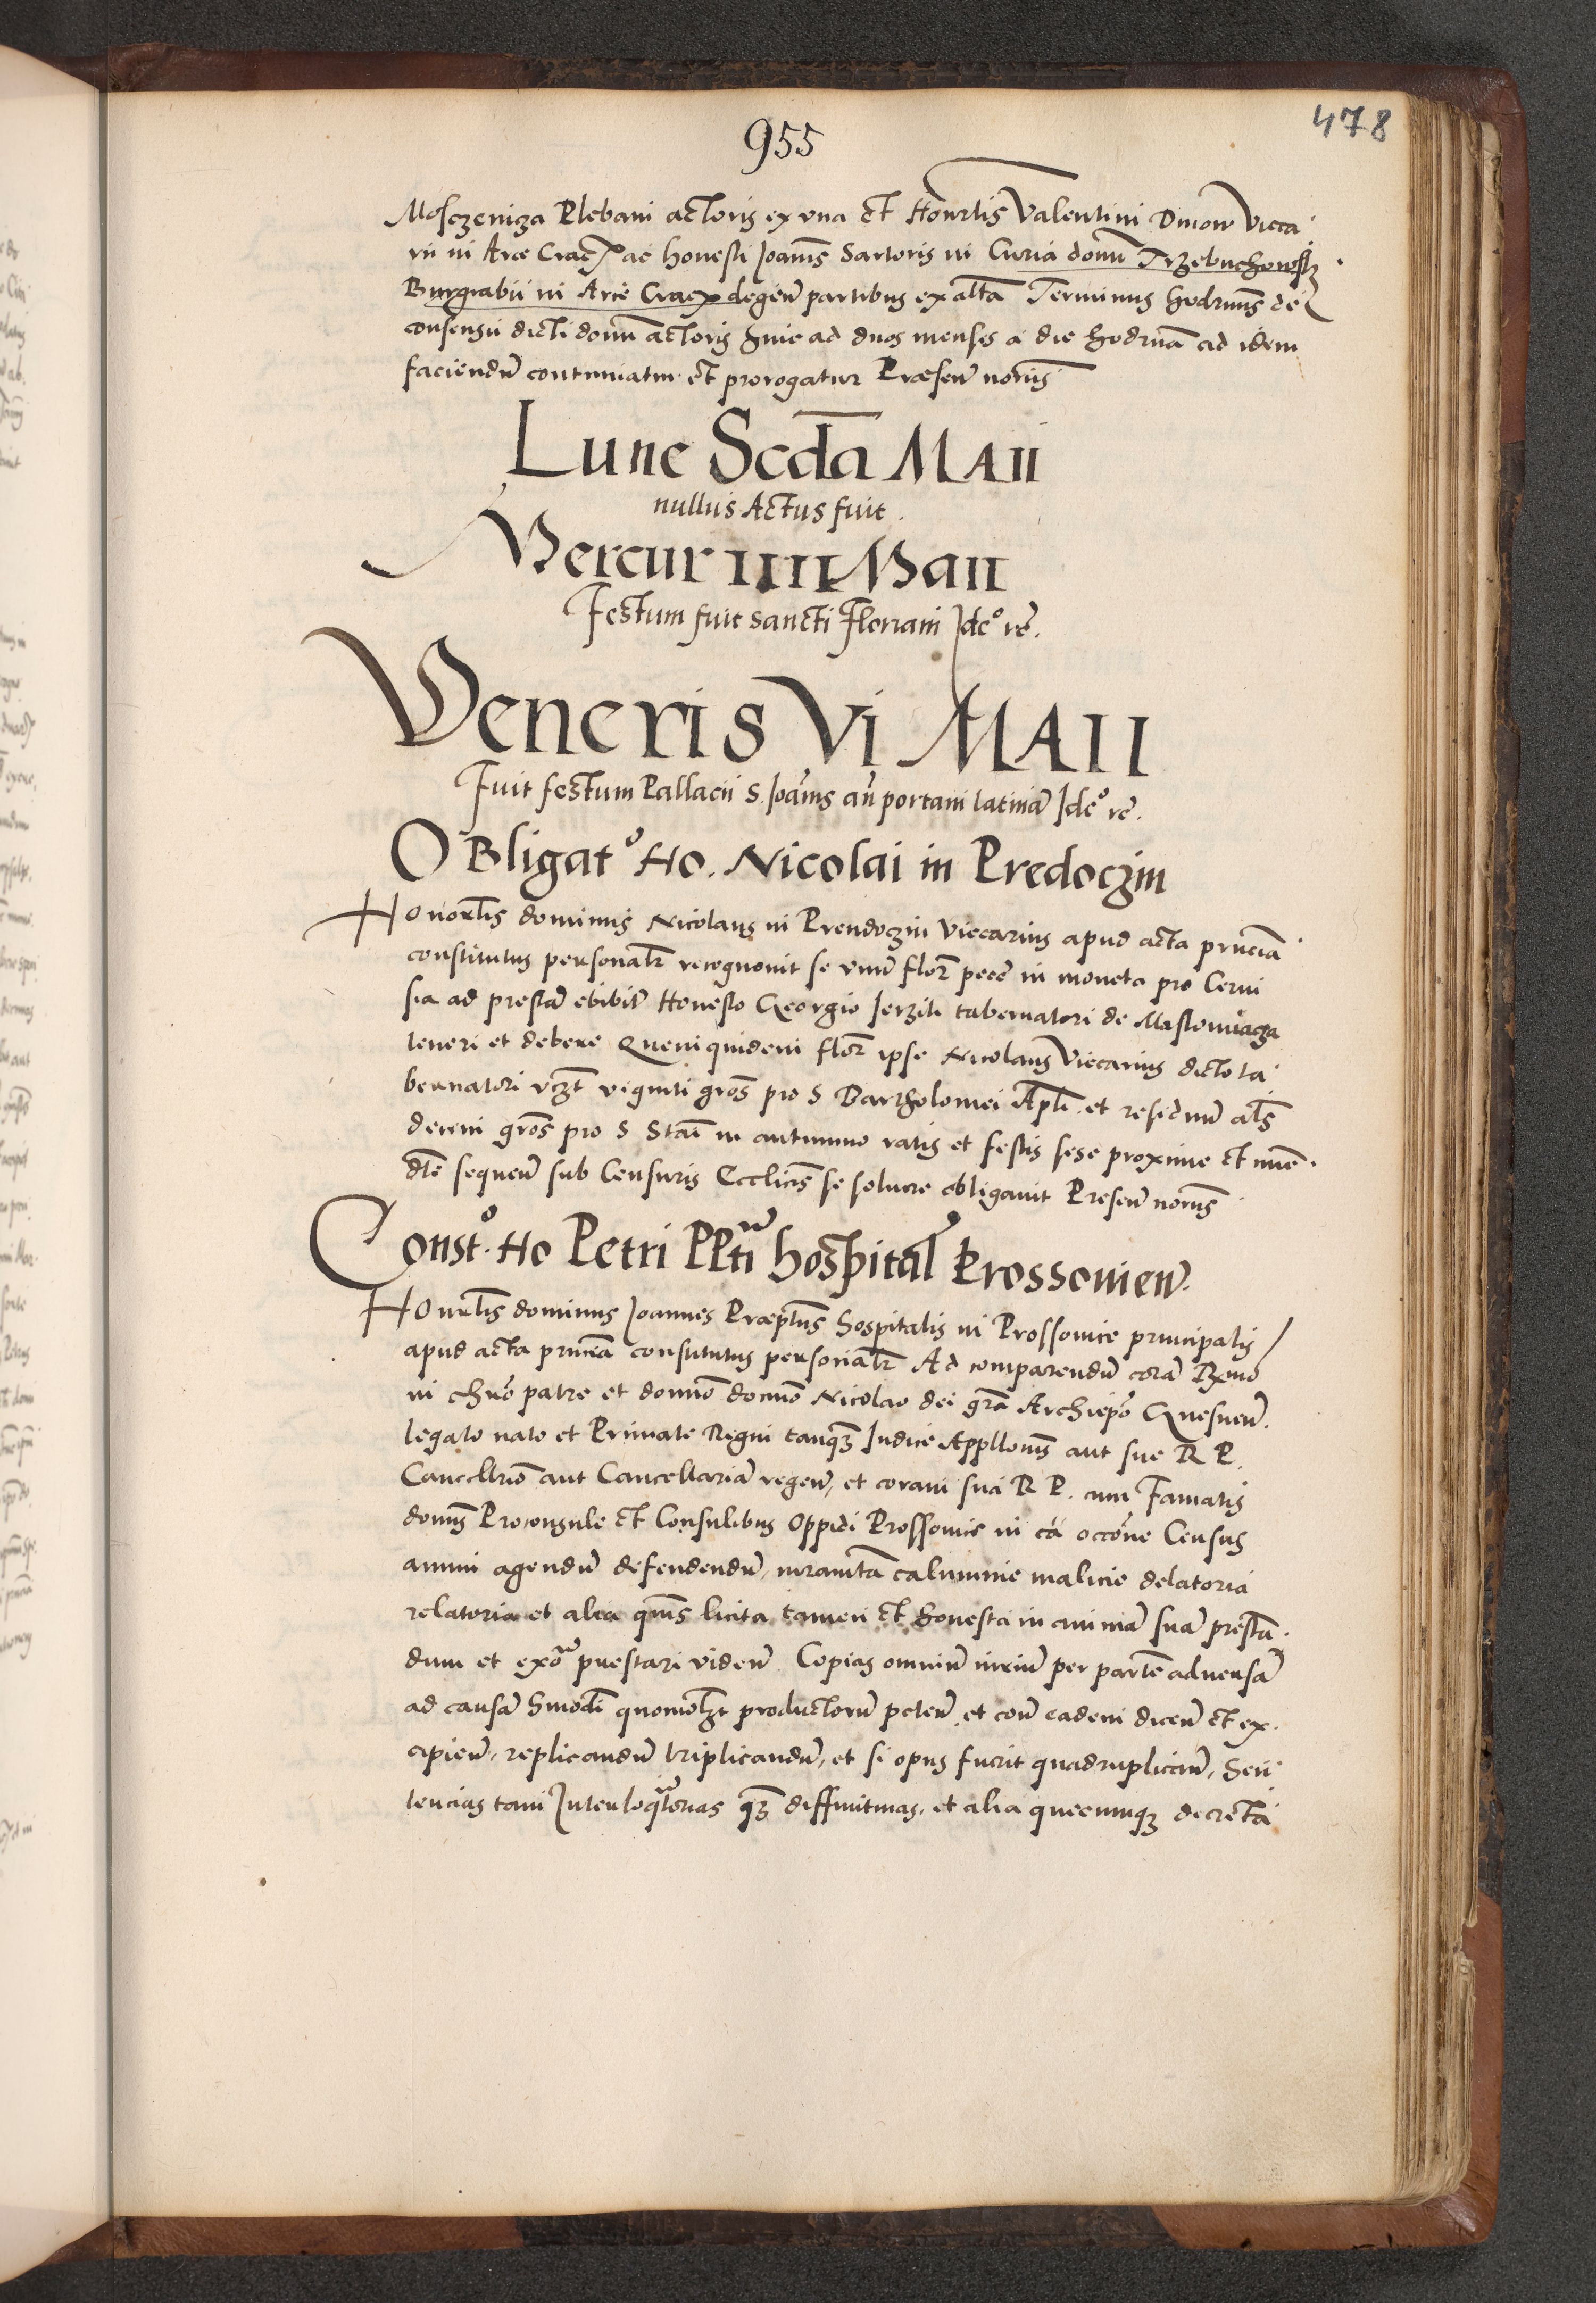 955
478
Mosczeniza Plebani actoris ex vna et Honrlis Valentini Dmow Vicca
rii in Arce Crac ac honesti Joannis Sartoris in Curia domi Trzebuchowsk
Burgrabii in Arce Crac degen partibus ex alta Terminus hodiernus de
consensu dicti domi actoris hinc ad duos menses a die hodierna ad idem
faciendum continuatur et prorogatur Presen notariis
Lune Scda MAII
nullus Actus fuit.
Mercur IIII Maii
Festum fuit sancti Floriani Ideo re.
Veneris VI MAII
Fuit festum Pallacii S. Joannis an portam latinam Ideo re.
OBligato Ho. Nicolai in Predoczin
Honorlis dominus Nicolaus in Prendoczin Viccarius apud acta princia
constitutus personalr recognouit se vnum flor pecc in moneta pro Cerui
sia ad prestam ebibitam Honesto Georgio Jerzik tabernatori de Maslomiacza
teneri et debere Quemquidem flor ipse Nicolaus Viccarius dicto ta
bernatori vczt viginti gros pro S Bartholomei Apli et residuum als
decem gros pro S Stai in autumno ratis et festis sese proxime et imme
dte sequen sub Censuris Ecclicis se soluere obligauit Presen notariis
Consto. Ho Petri PPti hospital Krossonien.
Honrlis dominus Joannes Præptus hospitalis in Crossonie principalis
apud acta princia constitutus personalr Ad comparendum coram Rxmo
in chro patre et domno domno Nicolao dei gra Archiepo Gnesnen.
legato nato et Primate Regni tanquam Judice Appellonis aut sue R P.
Cancellrio aut Cancellariam regen, et coram sua R P. cum Famatis
domis Proconsule et Consulibus Oppidi Crossonie in ca occone Census
annui agendum defendendum, iuramta calumnie malicie delatoria
relatoria et alia queuis licita tamen et honesta in animam suam presta
dum et exo prestari viden Copias omnium iurium per partem aduersam
ad causam hmodi quomolzt productorum peten, et con eadem dicen et ex
cipien, replicandum triplicandum, et si opus fuerit quadruplican, Sen
tencias tam Interloqtorias quam diffinitiuas, et alia quecunque decreta